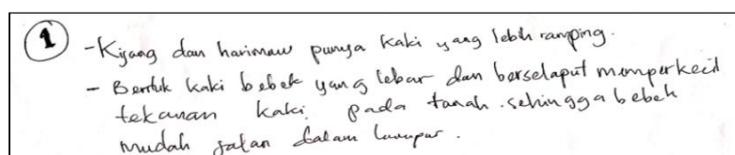 1 - Kijang dan harimau punya kaki yang lebih ramping.
- Bentuk kaki bebek yang lebar dan berselaput memperkecil
tekanan kaki pada tanah sehingga bebek
mudah jalan dalam lumpur.